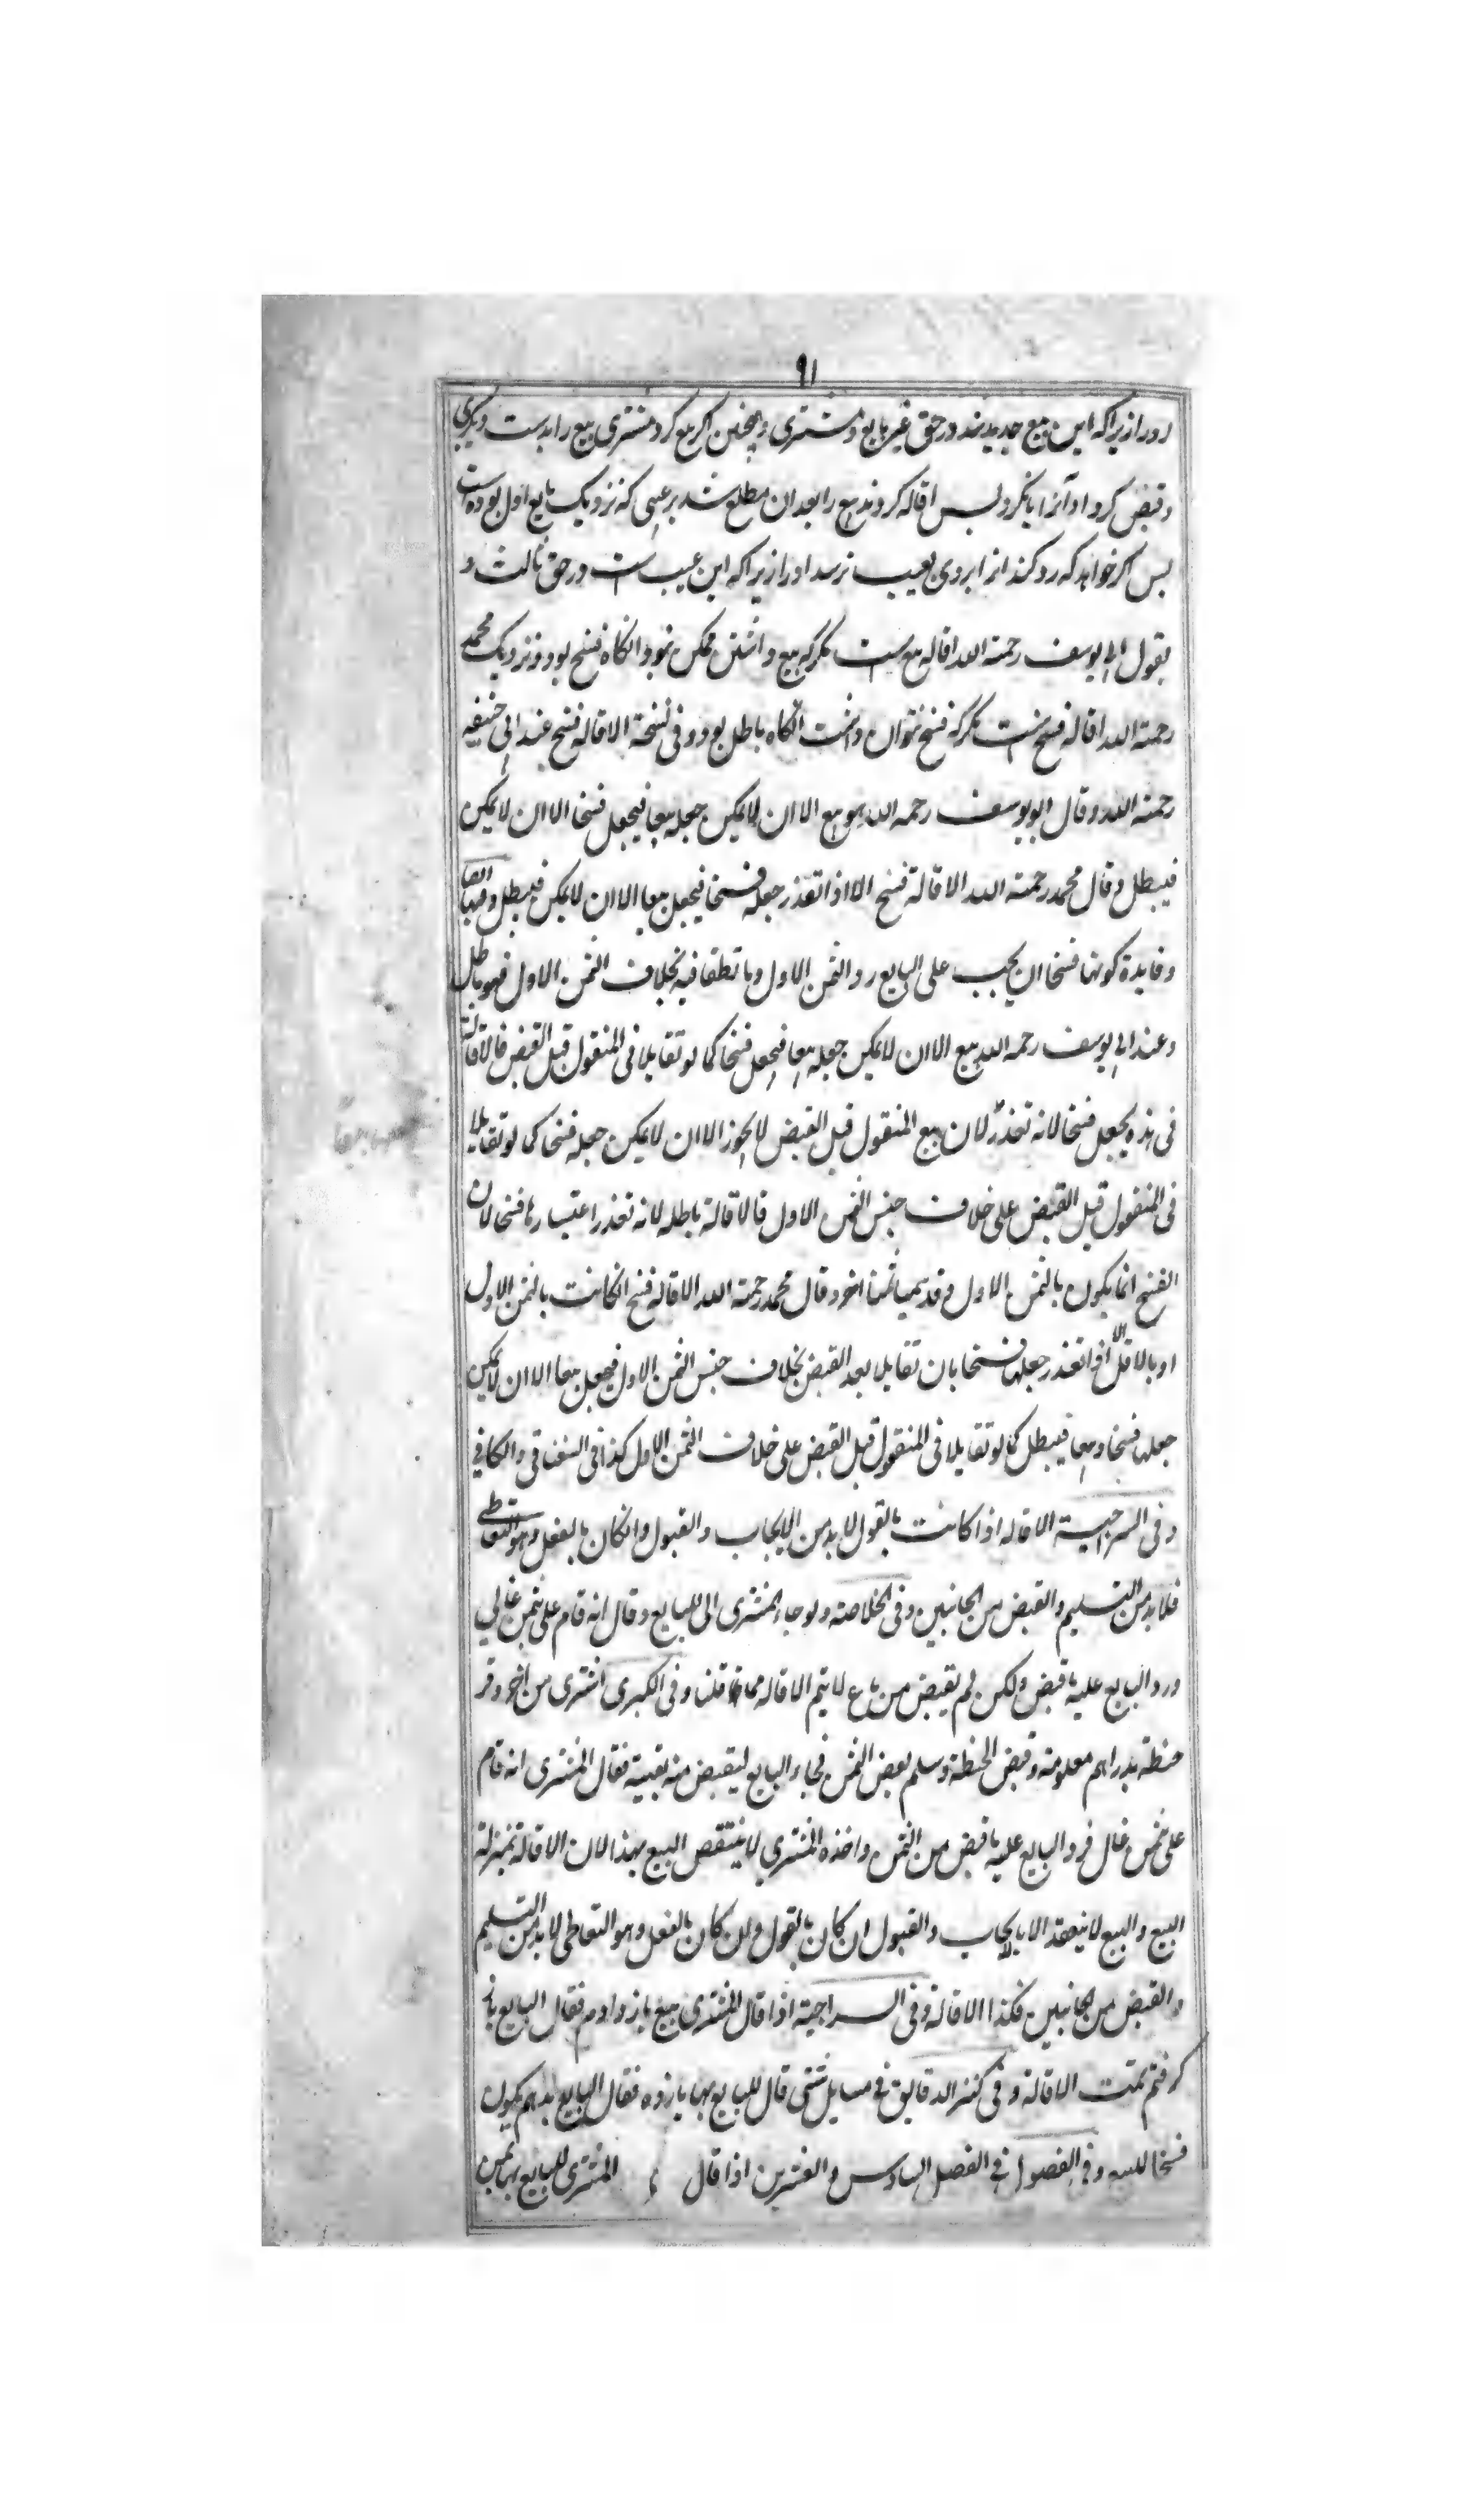 ٩١
اورا زیرا که این بیع جدید شد در حق غیر بایع و مشتری و همچنین اگر بیع کرد مشتری بیع را بدست دیگری
و قبض کرد او آنرا بس اقاله کردند بیع را بعد ان مطلع شد بر عیبی که نزدیک بایع اول بوده است
بس اگر خواهد که رد کند انرا بروی بعیب نرسد اورا زیرا که این عیب است در حق ثالث و
بقول ابی یوسف رحمة الله اقاله بیع ست مگر که بیع داشتن ممکن نبود انگاه فسخ بود و نزدیک محمد
رحمة الله اقاله فسخ است مگر که فسخ نتوان داشت انگاه باطل بود و فی نسخة الاقالة فسخ عند ابی حنیفه
رحمة الله و قال ابو یوسف رحمه الله هو بیع الا ان لا یمکن جعله بیعا فیجعل فسخا الا ان لا یمکن
فیبطل و قال محمد رحمة الله الاقالة فسخ الا اذا تعذر جعله فسخا فیجعل بیعا الا ان لا یمکن فیبطل و فیها ایضا
و فایدة کونها فسخا ان یجب علی البایع رد الثمن الاول و ما نطقا فیه بخلاف الثمن الاول فهو باطل
و عند ابی یوسف رحمه الله بیع الا ان لا یمکن جعله بیعا فیجعل فسخا کما لو تقایلا فی المنقول قبل القبض فالاقالة
فی هذه یجعل فسخا لانه تعذر لان بیع المنقول قبل القبض لا یجوز الا ان لا یمکن جعله فسخا کما لو تقایلا
فی المنقول قبل القبض علی خلاف جنس الثمن الاول فالاقالة باطله لانه تعذر اعتبارها فسخا لان
الفسخ انما یکون بالثمن الاول و قد سمیا ثمنا اخر و قال محمد رحمة الله الاقاله فسخ انکانت بالثمن الاول
او بالاقل الا اذا تعذر جعلها فسخا بان تقایلا بعد القبض بخلاف جنس الثمن الاول فیجعل بیعا الا ان لا یمکن
جعلها فسخا و بیعا فیبطل کما لو تقایلا فی المنقول قبل القبض علی خلاف الثمن الاول کذا فی السغناقی و الکافی
و فی السراجیة الاقاله اذا کانت بالقول لا بد من الایجاب و القبول و انکان بالفعل و هو التعاطی
فلا بد من التسلیم و القبض من الجانبین و فی الخلاصة و لو جاء المشتری الی البایع و قال انه قام علی بثمن غالی
ورد البایع علیه ما قبض ولکن لم یقبض من باع لا یتم الاقاله مما قلنا و فی الکبری اشتری من اخر وقر
حنطة بدراهم معلومة و قبض الحنطة و سلم بعض الثمن فجاء البایع لیقبض منه بقیته فقال المشتری انه قام
علی بثمن غال فرد البایع علیه ما قبض من الثمن و اخذه المشتری لا ینتقض البیع بهذا لان الاقالة بمنزلة
البیع و البیع لا ینعقد الا بالایجاب و القبول ان کان بالقول و ان کان بالفعل و هو التعاطی لا بد من التسلیم
و القبض من الجانبین فکذا الاقالة و فی السراجیة اذا قال المشتری بیع باز دادم فقال البایع باز
گرفتم تمت الاقالة و فی کنز الدقایق فی مسایل شتی قال للبایع فقال البایع یکون
فسخا للبیع و فی الفصول فی الفصل السادس و العشرین اذا قال المشتری للبایع